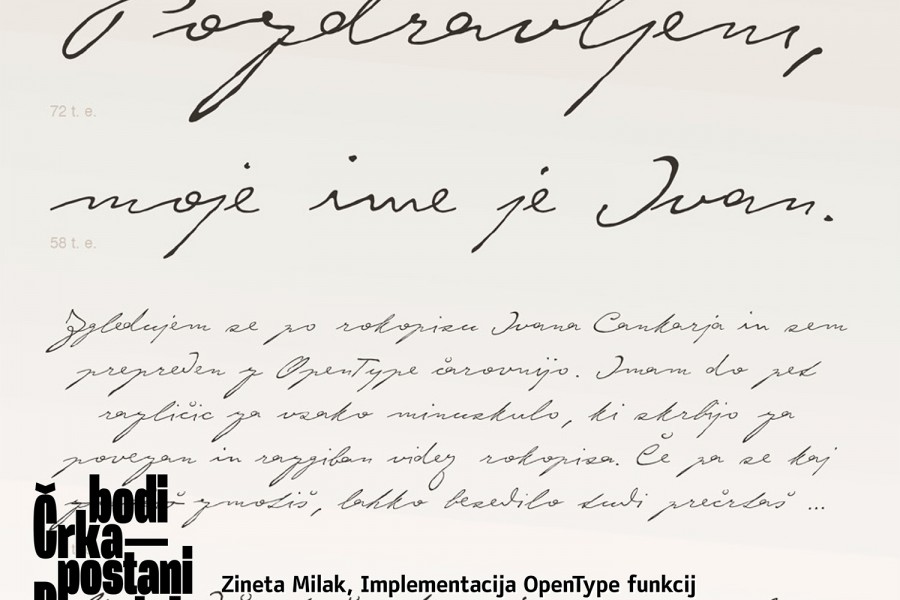 Pozdravljeni,
72 t. e.
moje ime je Ivan.
58 t. e.
Zgledujem se po rokopisu Ivana Cankarja in sem
prepreden z OpenType čarovnijo. Imam do pet
različic za vsako minuskulo, ki skrbijo za
povezan in razgiban videz rokopisa. Če pa se kaj
zmotiš, lahko besedilo tudi prečrtaš ...
bodi
Črka—
postani
Zineta Milak, Implementacija OpenType funkcij